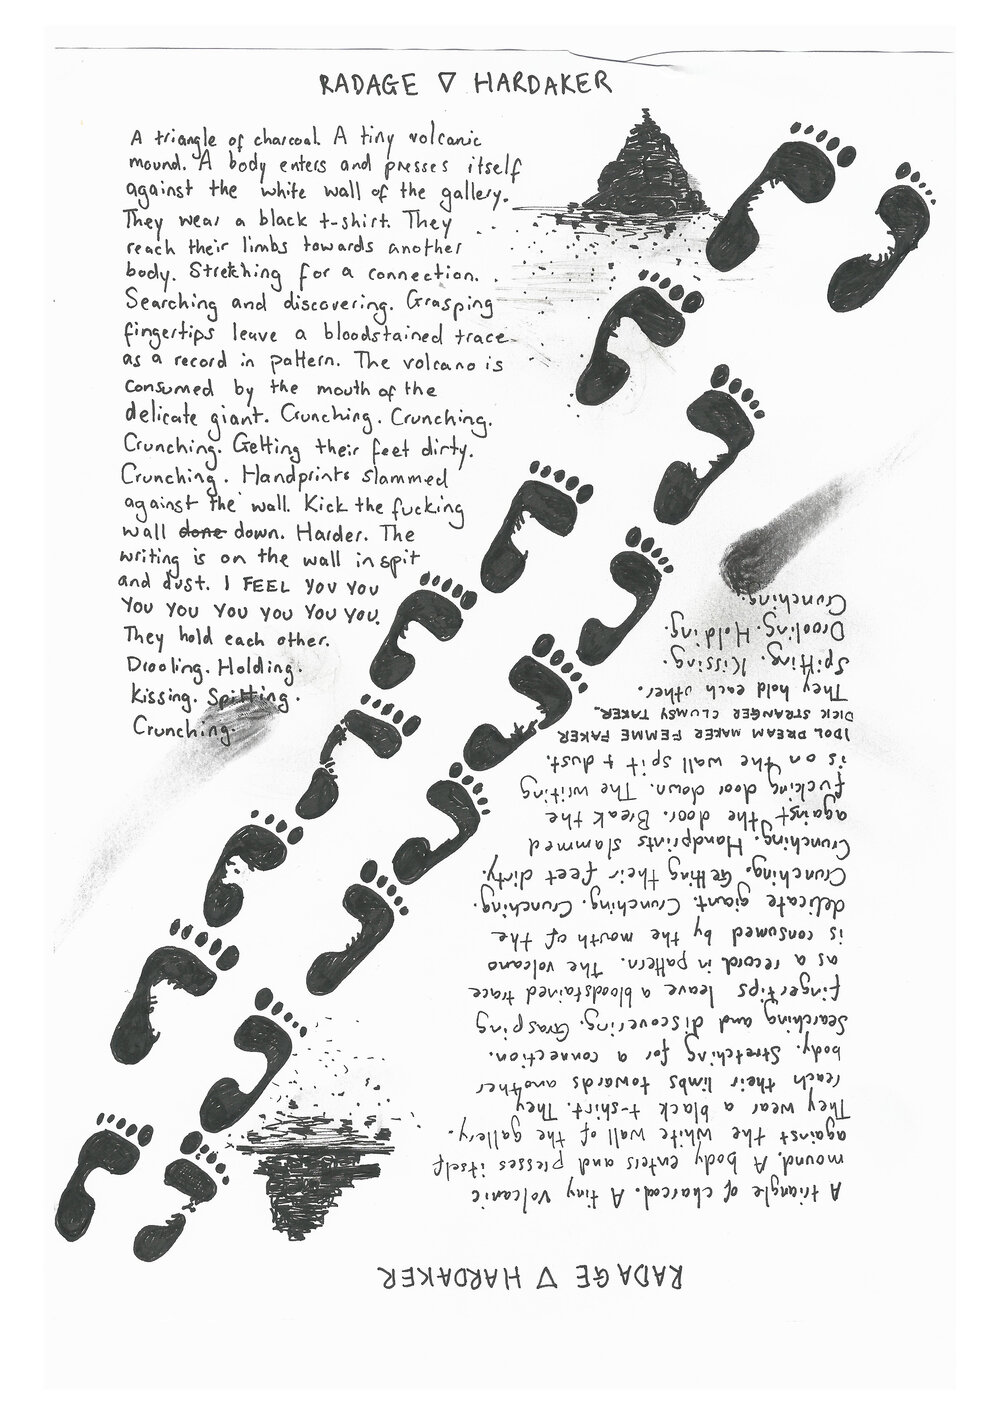 RADAGE ▽ HARDAKER
A triangle of charcoal. A tiny volcanic
mound. A body enters and presses itself
against the white wall of the gallery.
They wear a black t-shirt. They
reach their limbs towards another
body. Stretching for a connection.
Searching and discovering. Grasping
fingertips leave a bloodstained trace
as a record in pattern. The volcano is
consumed by the mouth of the
delicate giant. Crunching. Crunching.
Crunching. Getting their feet dirty.
Crunching. Handprints slammed
against the wall. Kick the fucking
wall done down. Harder. The
writing is on the wall in spit
and dust. I FEEL YOU YOU
YOU YOU YOU YOU YOU YOU.
They hold each other.
Drooling. Holding.
Kissing. Spitting.
Crunching.
RADAGE ▽ HARDAKER
A triangle of charcoal. A tiny volcanic
mound. A body enters and presses itself
against the white wall of the gallery.
They wear a black t-shirt. They
reach their limbs towards another
body. Stretching for a connection.
Searching and discovering. Grasping
fingertips leave a bloodstained trace
as a record in pattern. The volcano
is consumed by the mouth of the
delicate giant. Crunching. Crunching.
Crunching. Getting their feet dirty.
Crunching. Handprints slammed
against the door. Break the
fucking door down. The writing
is on the wall spit + dust.
IDOL DREAM MAKER FEMME FAKER
DICK STRANGER CLUMSY TAKER.
They hold each other.
Spitting. Kissing.
Drooling. Holding.
Crunching.